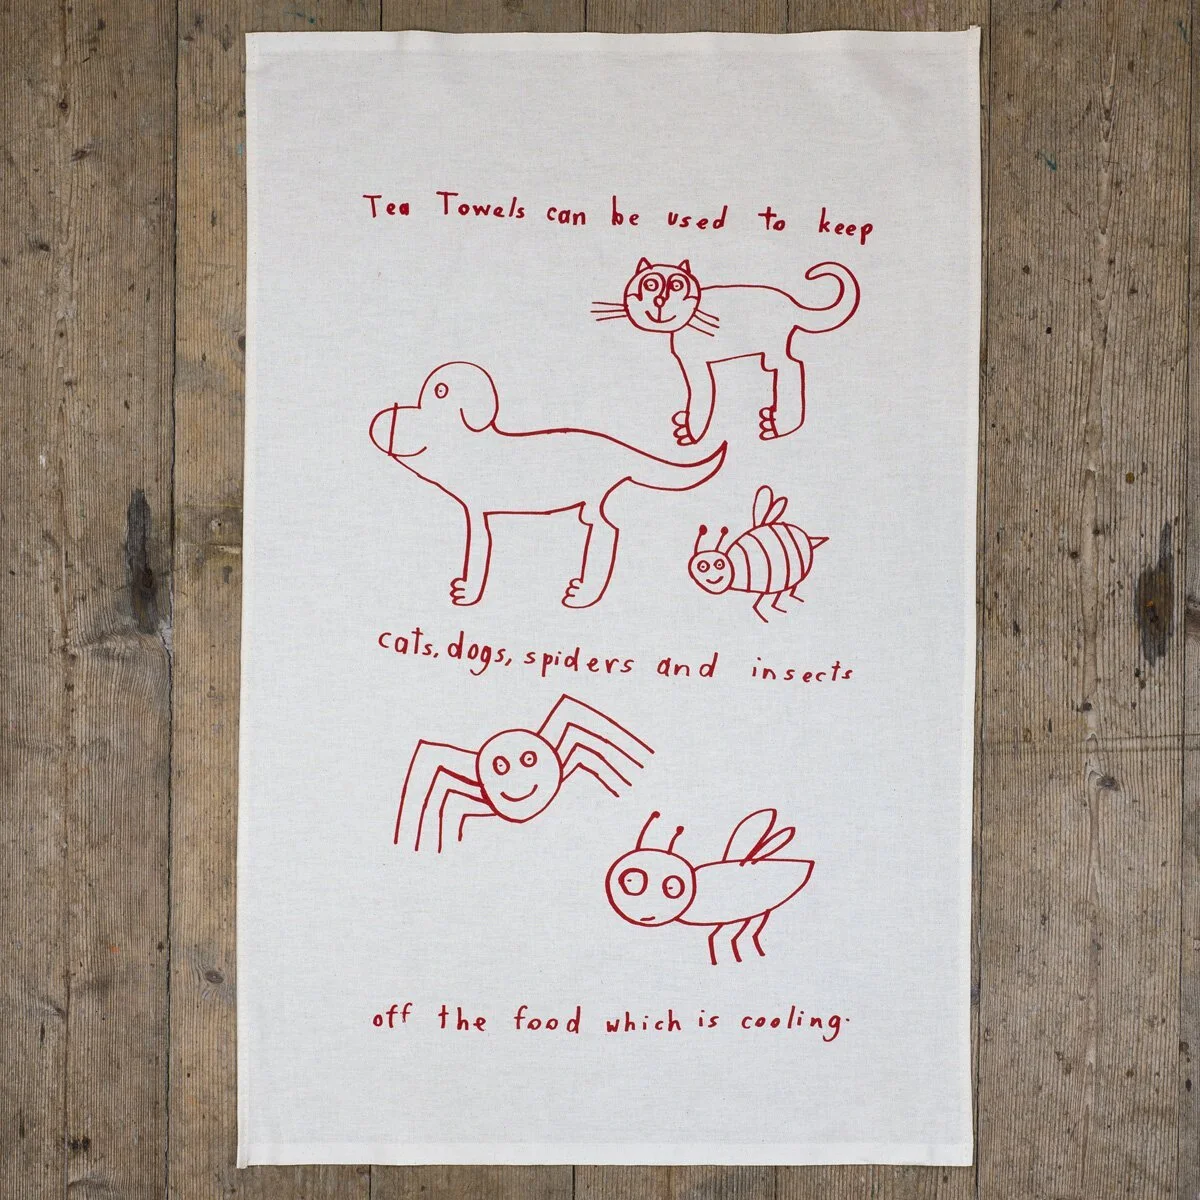 Tea Towels can be used to keep
cats, dogs, spiders and insects
off the food which is cooling.